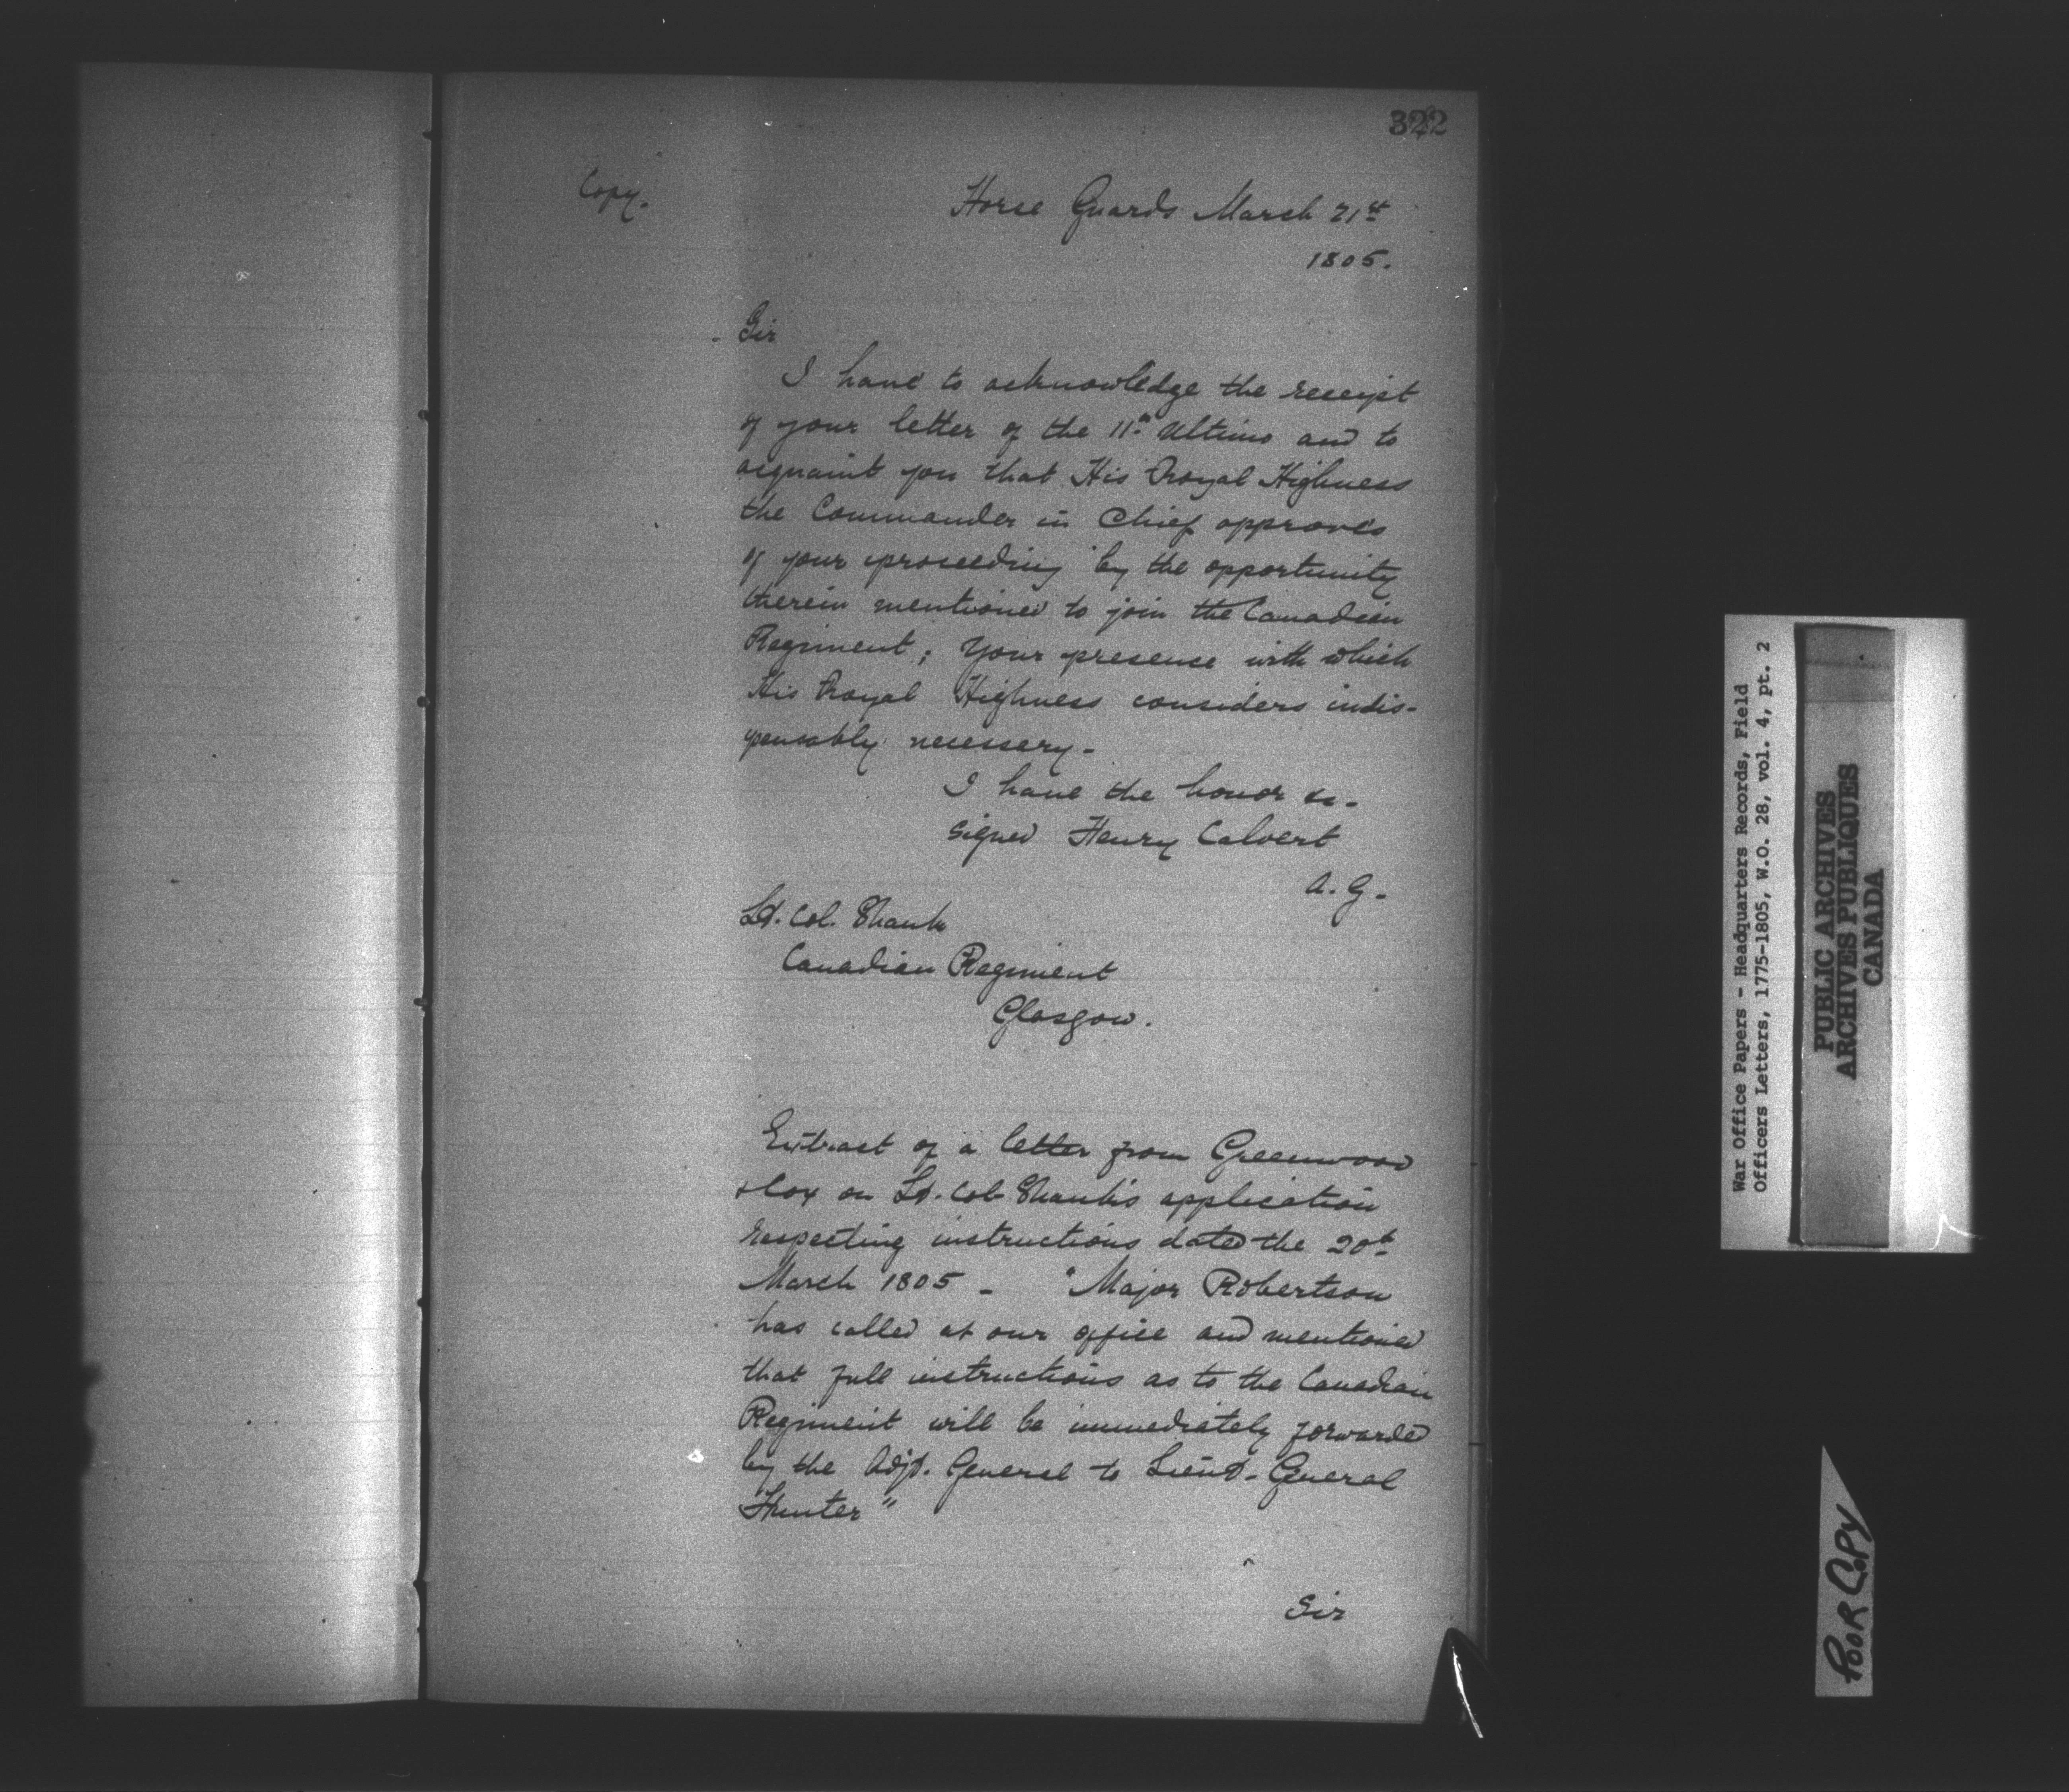 322
Copy.
Horse Guards March 21st
1805.
Sir
I have to acknowledge the receipt
of your letter of the 11th Ultimo and to
acquaint you that His Royal Highness
the Commander in Chief approves
of your proceeding by the opportunity
therein mentioned to join the Canadian
Regiment; Your presence with which
His Royal Highness considers indis-
pensably necessary-
I have the honor &c-
Signed Henry Calvert
A. G.
Lt. Col. Shank
Canadian Regiment
Glasgow.
Extract of a letter from Greenwood
& Cox on Lt. Col Shank's application
respecting instructions dated the 20th
March 1805 - "Major Robertson
has called at our office and mentioned
that full instructions as to the Canadian
Regiment will be immediately forwarded
by the Adjt. General to Lieut-General
Hunter"
Sir
War Office Papers - Headquarters Records, Field
Officers Letters, 1775-1805, W.O. 28, vol. 4, pt. 2
PUBLIC ARCHIVES
ARCHIVES PUBLIQUES
CANADA
POOR COPY